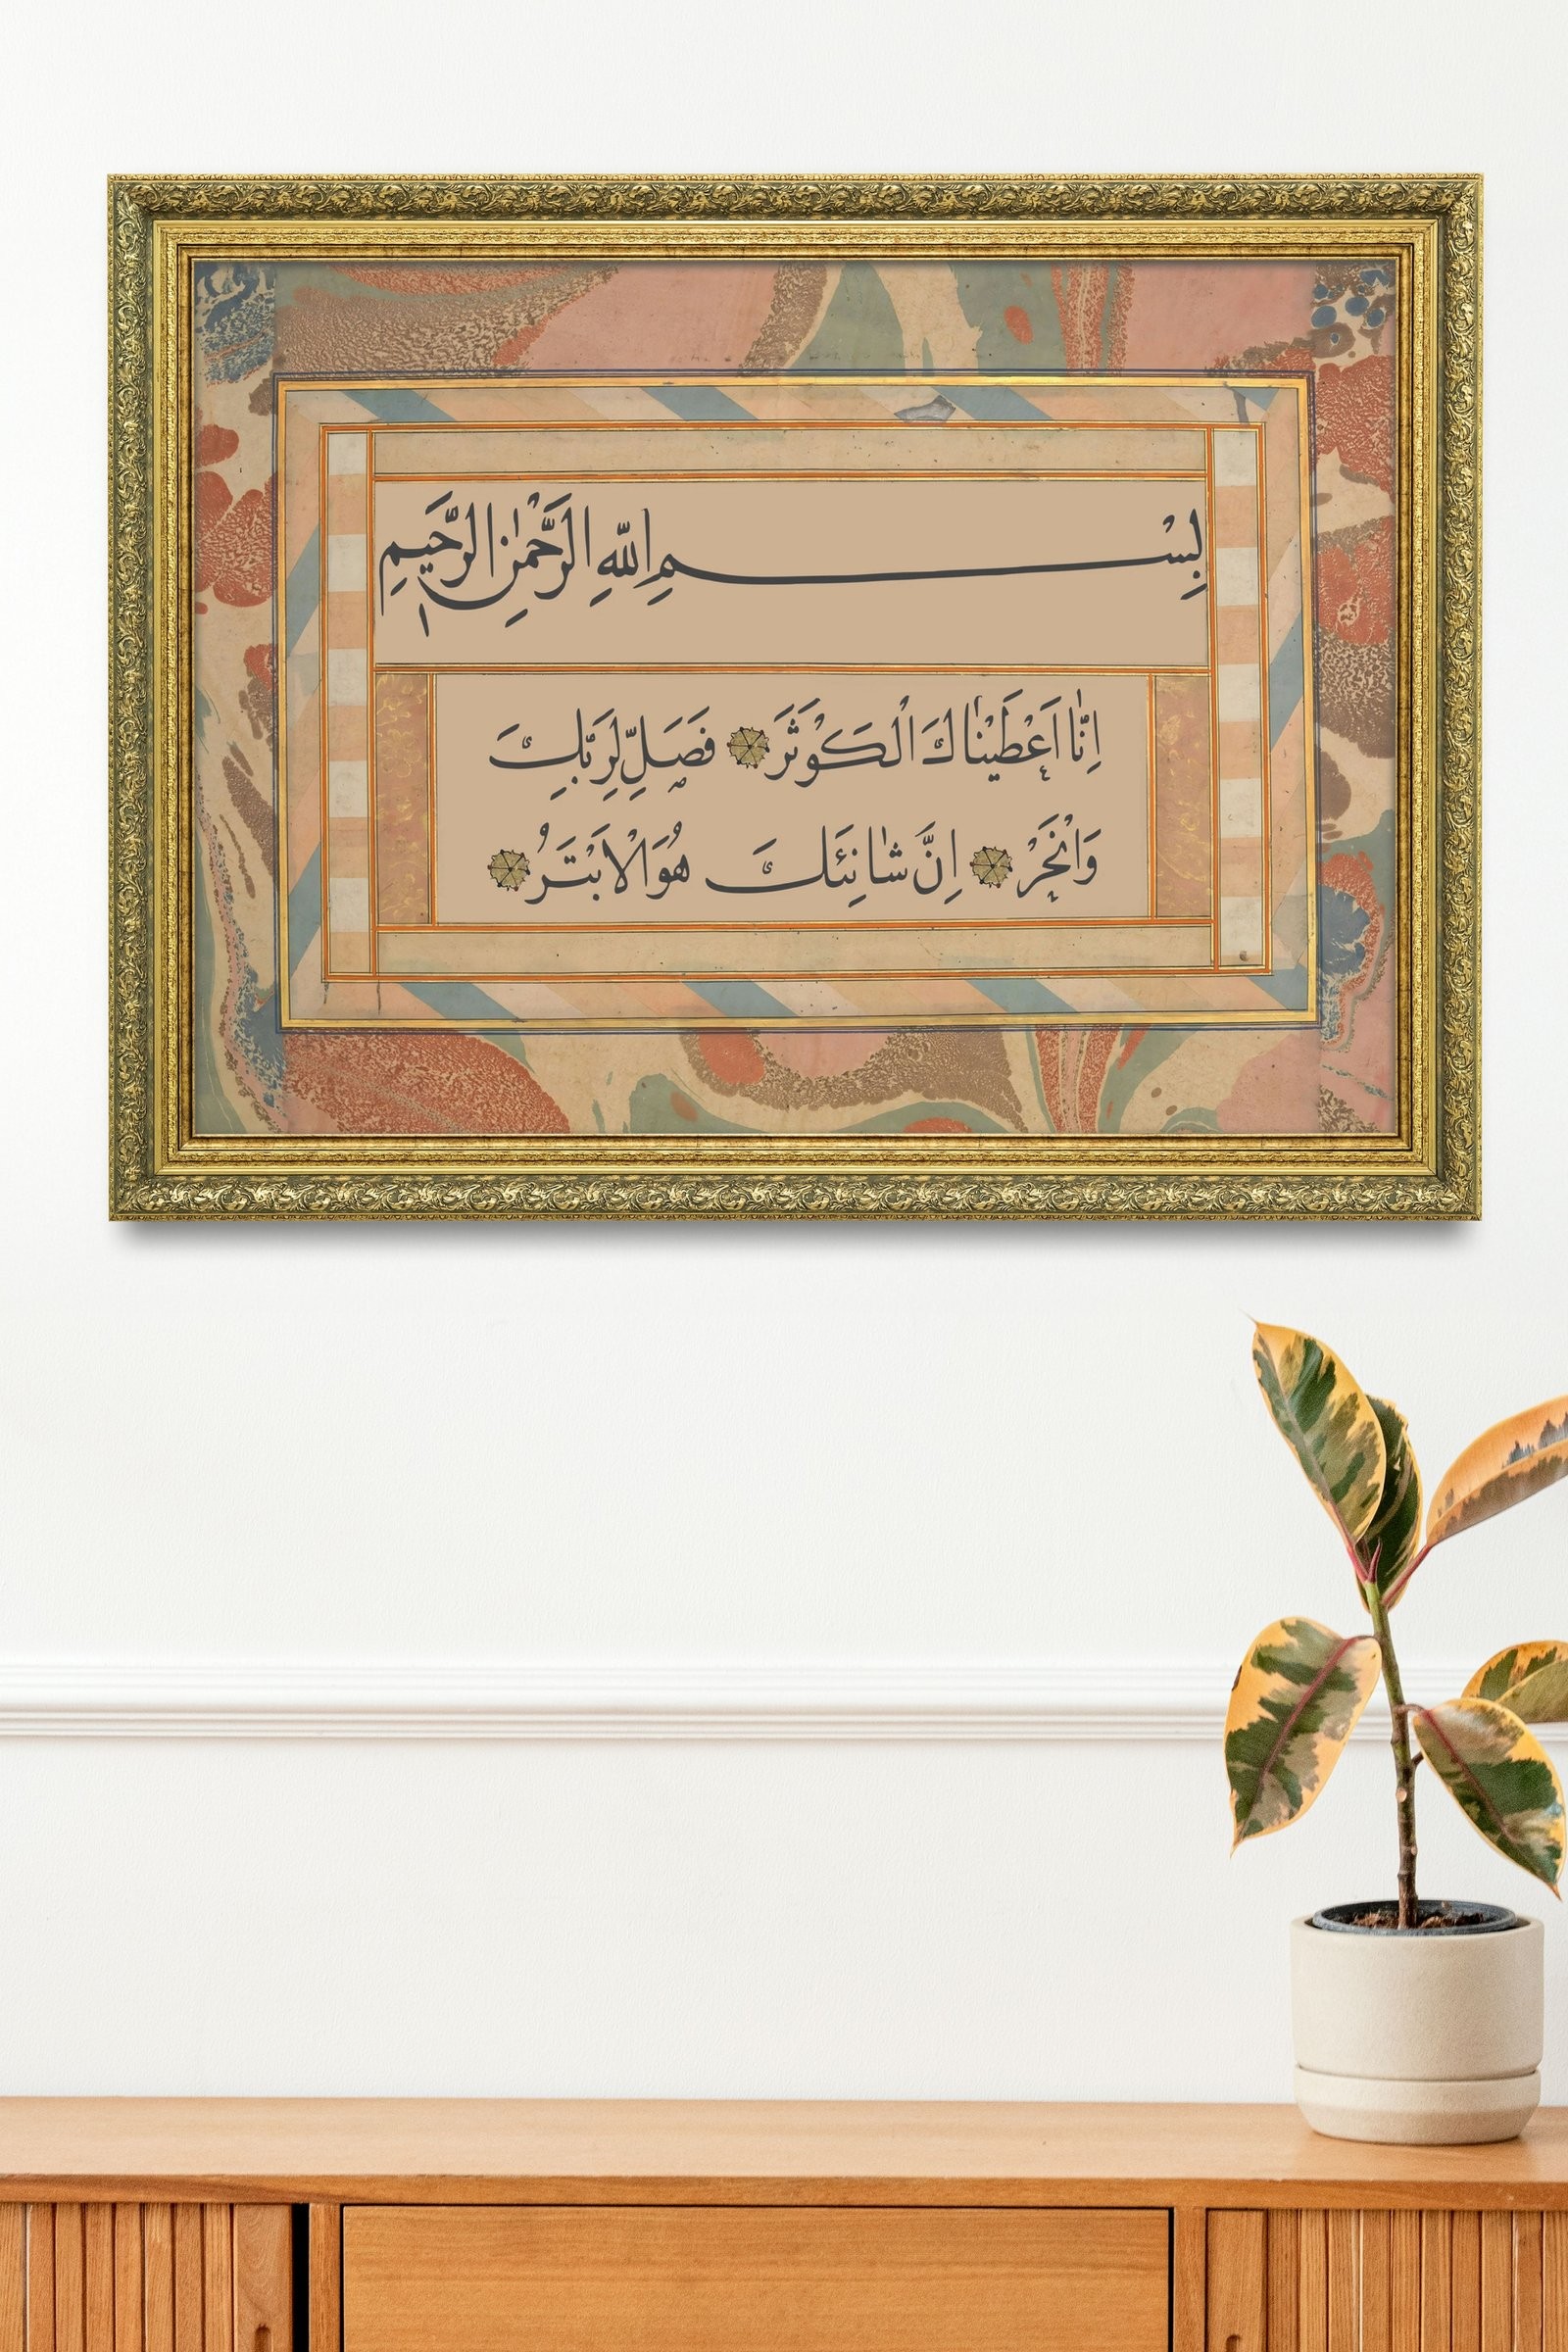 بِسْمِ اللّٰهِ الرَّحْمٰنِ الرَّحٖيمِ
اِنَّٓا اَعْطَيْنَاكَ الْكَوْثَرَ ۝ فَصَلِّ لِرَبِّكَ
وَانْحَرْ ۝ اِنَّ شَانِئَكَ هُوَ الْاَبْتَرُ ۝